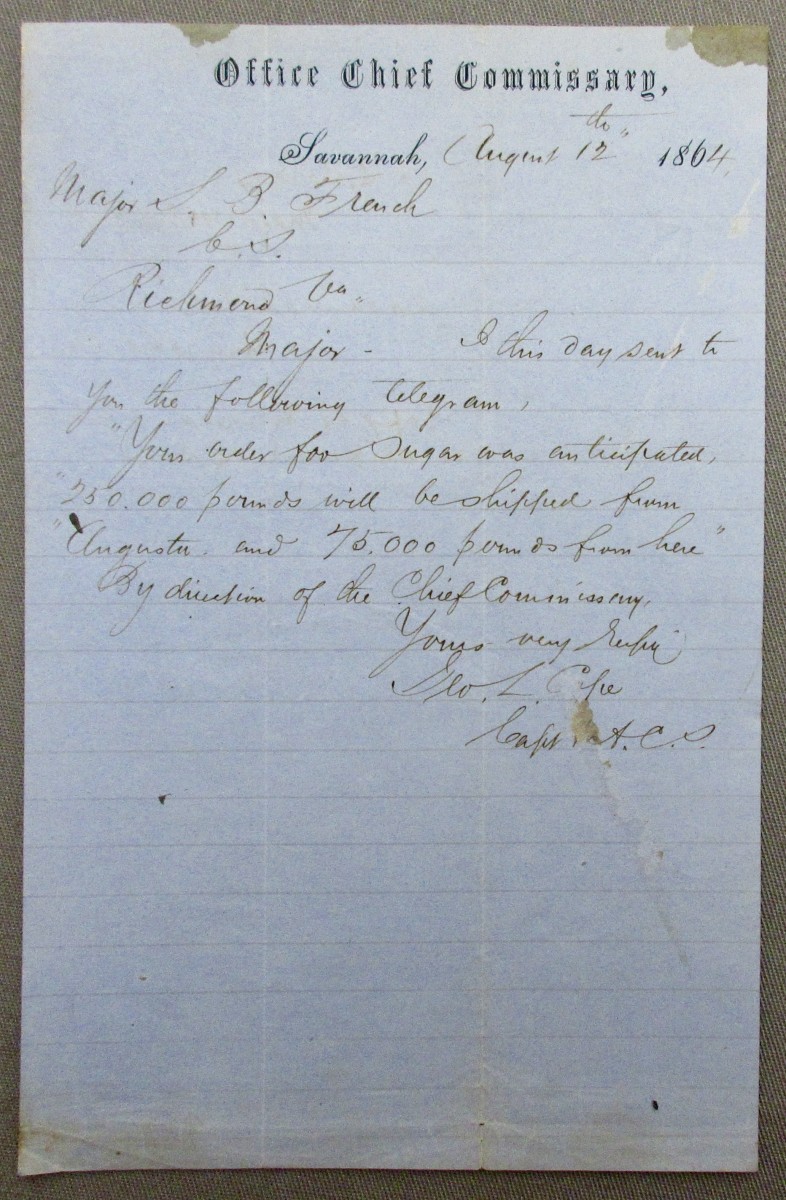 Office Chief Commissary,
Savannah, August 12th 1864,
Major S. B. French
C. S.
Richmond Va
Major - I this day sent to
you the following telegram,
"Your order for Sugar was anticipated,
"250.000 pounds will be shipped from
"Augusta and 75.000 pounds from here"
By direction of the Chief Commissary,
Yours very
Geo. L. Cope
Capt A. C. S.